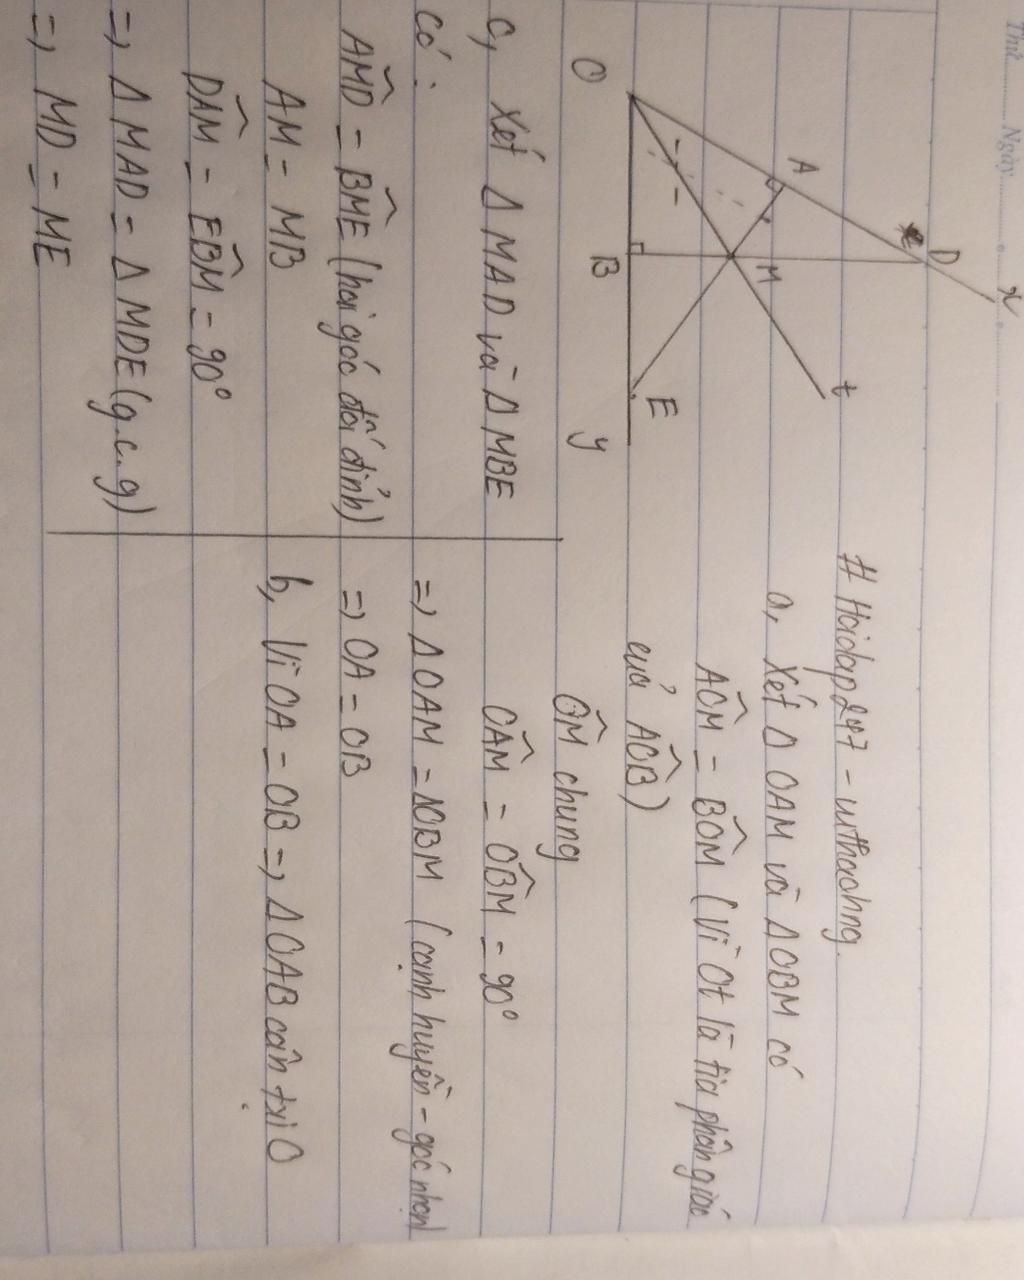 Thứ Ngày
x
D
A
t
M
O
B
E
y
# Hoidap247 -
a, Xét Δ OAM và Δ OBM có
AÔM = BÔM (Vì Ot là tia phân giác
của AÔB)
ÔM chung
OÂM = OB̂M = 90°
=> Δ OAM = ΔOBM (cạnh huyền - góc nhọn)
=> OA = OB
b, Vì OA = OB => Δ OAB cân tại O
c, Xét Δ MAD và Δ MBE
có :
AM̂D = BM̂E (hai góc đối đỉnh)
AM = MB
DÂM = EB̂M = 90°
=> Δ MAD = Δ MDE (g.c.g)
=> MD = ME